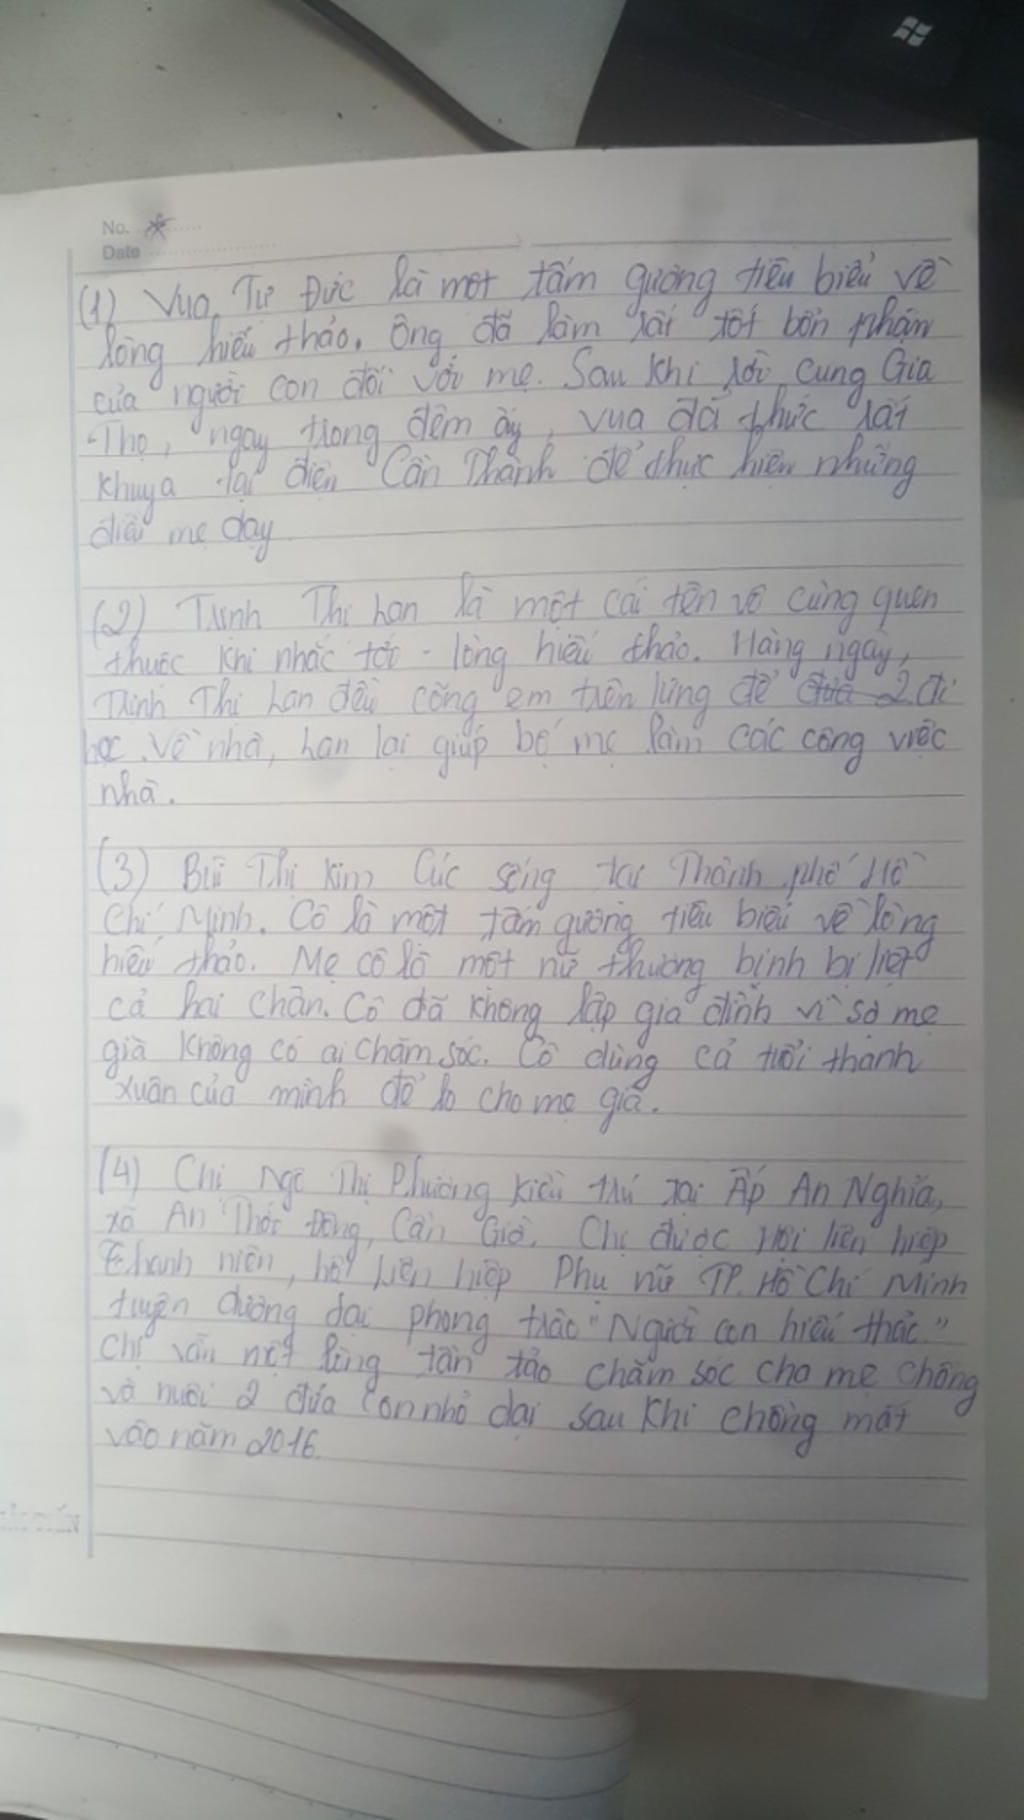 No.
Date
(1) Vua Tự Đức là một tấm gương tiêu biểu về
lòng hiếu thảo. Ông đã làm rất tốt bổn phận
của người con đối với mẹ. Sau khi rời cung Gia
Thọ, ngay trong đêm ấy, vua đã thức rất
khuya tại điện Cần Thành để thực hiện những
điều mẹ dạy
(2) Trịnh Thị han là một cái tên vô cùng quen
thuộc khi nhắc tới - lòng hiếu thảo. Hàng ngày,
Trịnh Thị han đều cõng em trên lưng để đi
học. Về nhà, han lại giúp bố mẹ làm các công việc
nhà.
(3) Bùi Thị Kim Cúc sống tại Thành phố Hồ
Chí Minh. Cô là một tấm gương tiêu biểu về lòng
hiếu thảo. Mẹ cô là một nữ thương binh bị liệt
cả hai chân. Cô đã không lập gia đình vì sợ mẹ
già không có ai chăm sóc. Cô dùng cả tuổi thanh
xuân của mình để lo cho mẹ già.
(4) Chị Ngô Thị Phương Kiều trú tại Ấp An Nghĩa,
xã An Thới Đông, Cần Giờ. Chị được Hội liên hiệp
thanh niên, hội liên hiệp Phụ nữ TP. Hồ Chí Minh
tuyên dương tại phong trào "Người con hiếu thảo."
Chị vẫn một lòng tần tảo chăm sóc cha mẹ chồng
và nuôi 2 đứa con nhỏ dại sau khi chồng mất
vào năm 2016.